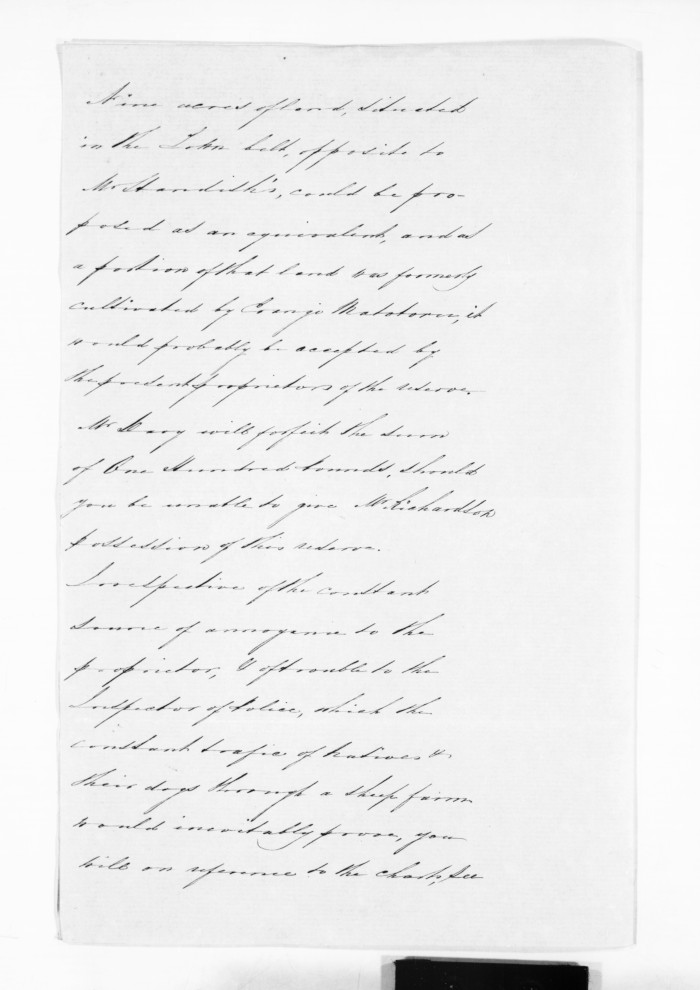 Nine acres of land, situated
in the Town belt, opposite to
Mr Standish's, could be pro-
posed as an equivalent, and as
a portion of that land was formerly
cultivated by
it
would probably be accepted by
the present proprietors of the reserve.
Mr
will forfeit the sum
of One Hundred Pounds, should
you be unable to give Mr Richardson
possession of this reserve.
Irrespective of the constant
source of annoyance to the
proprietor, & of trouble to the
Inspector of Police, which the
constant trafic of Natives &
their dogs through a sheep farm
would inevitably prove, you
will on reference to the chart, see